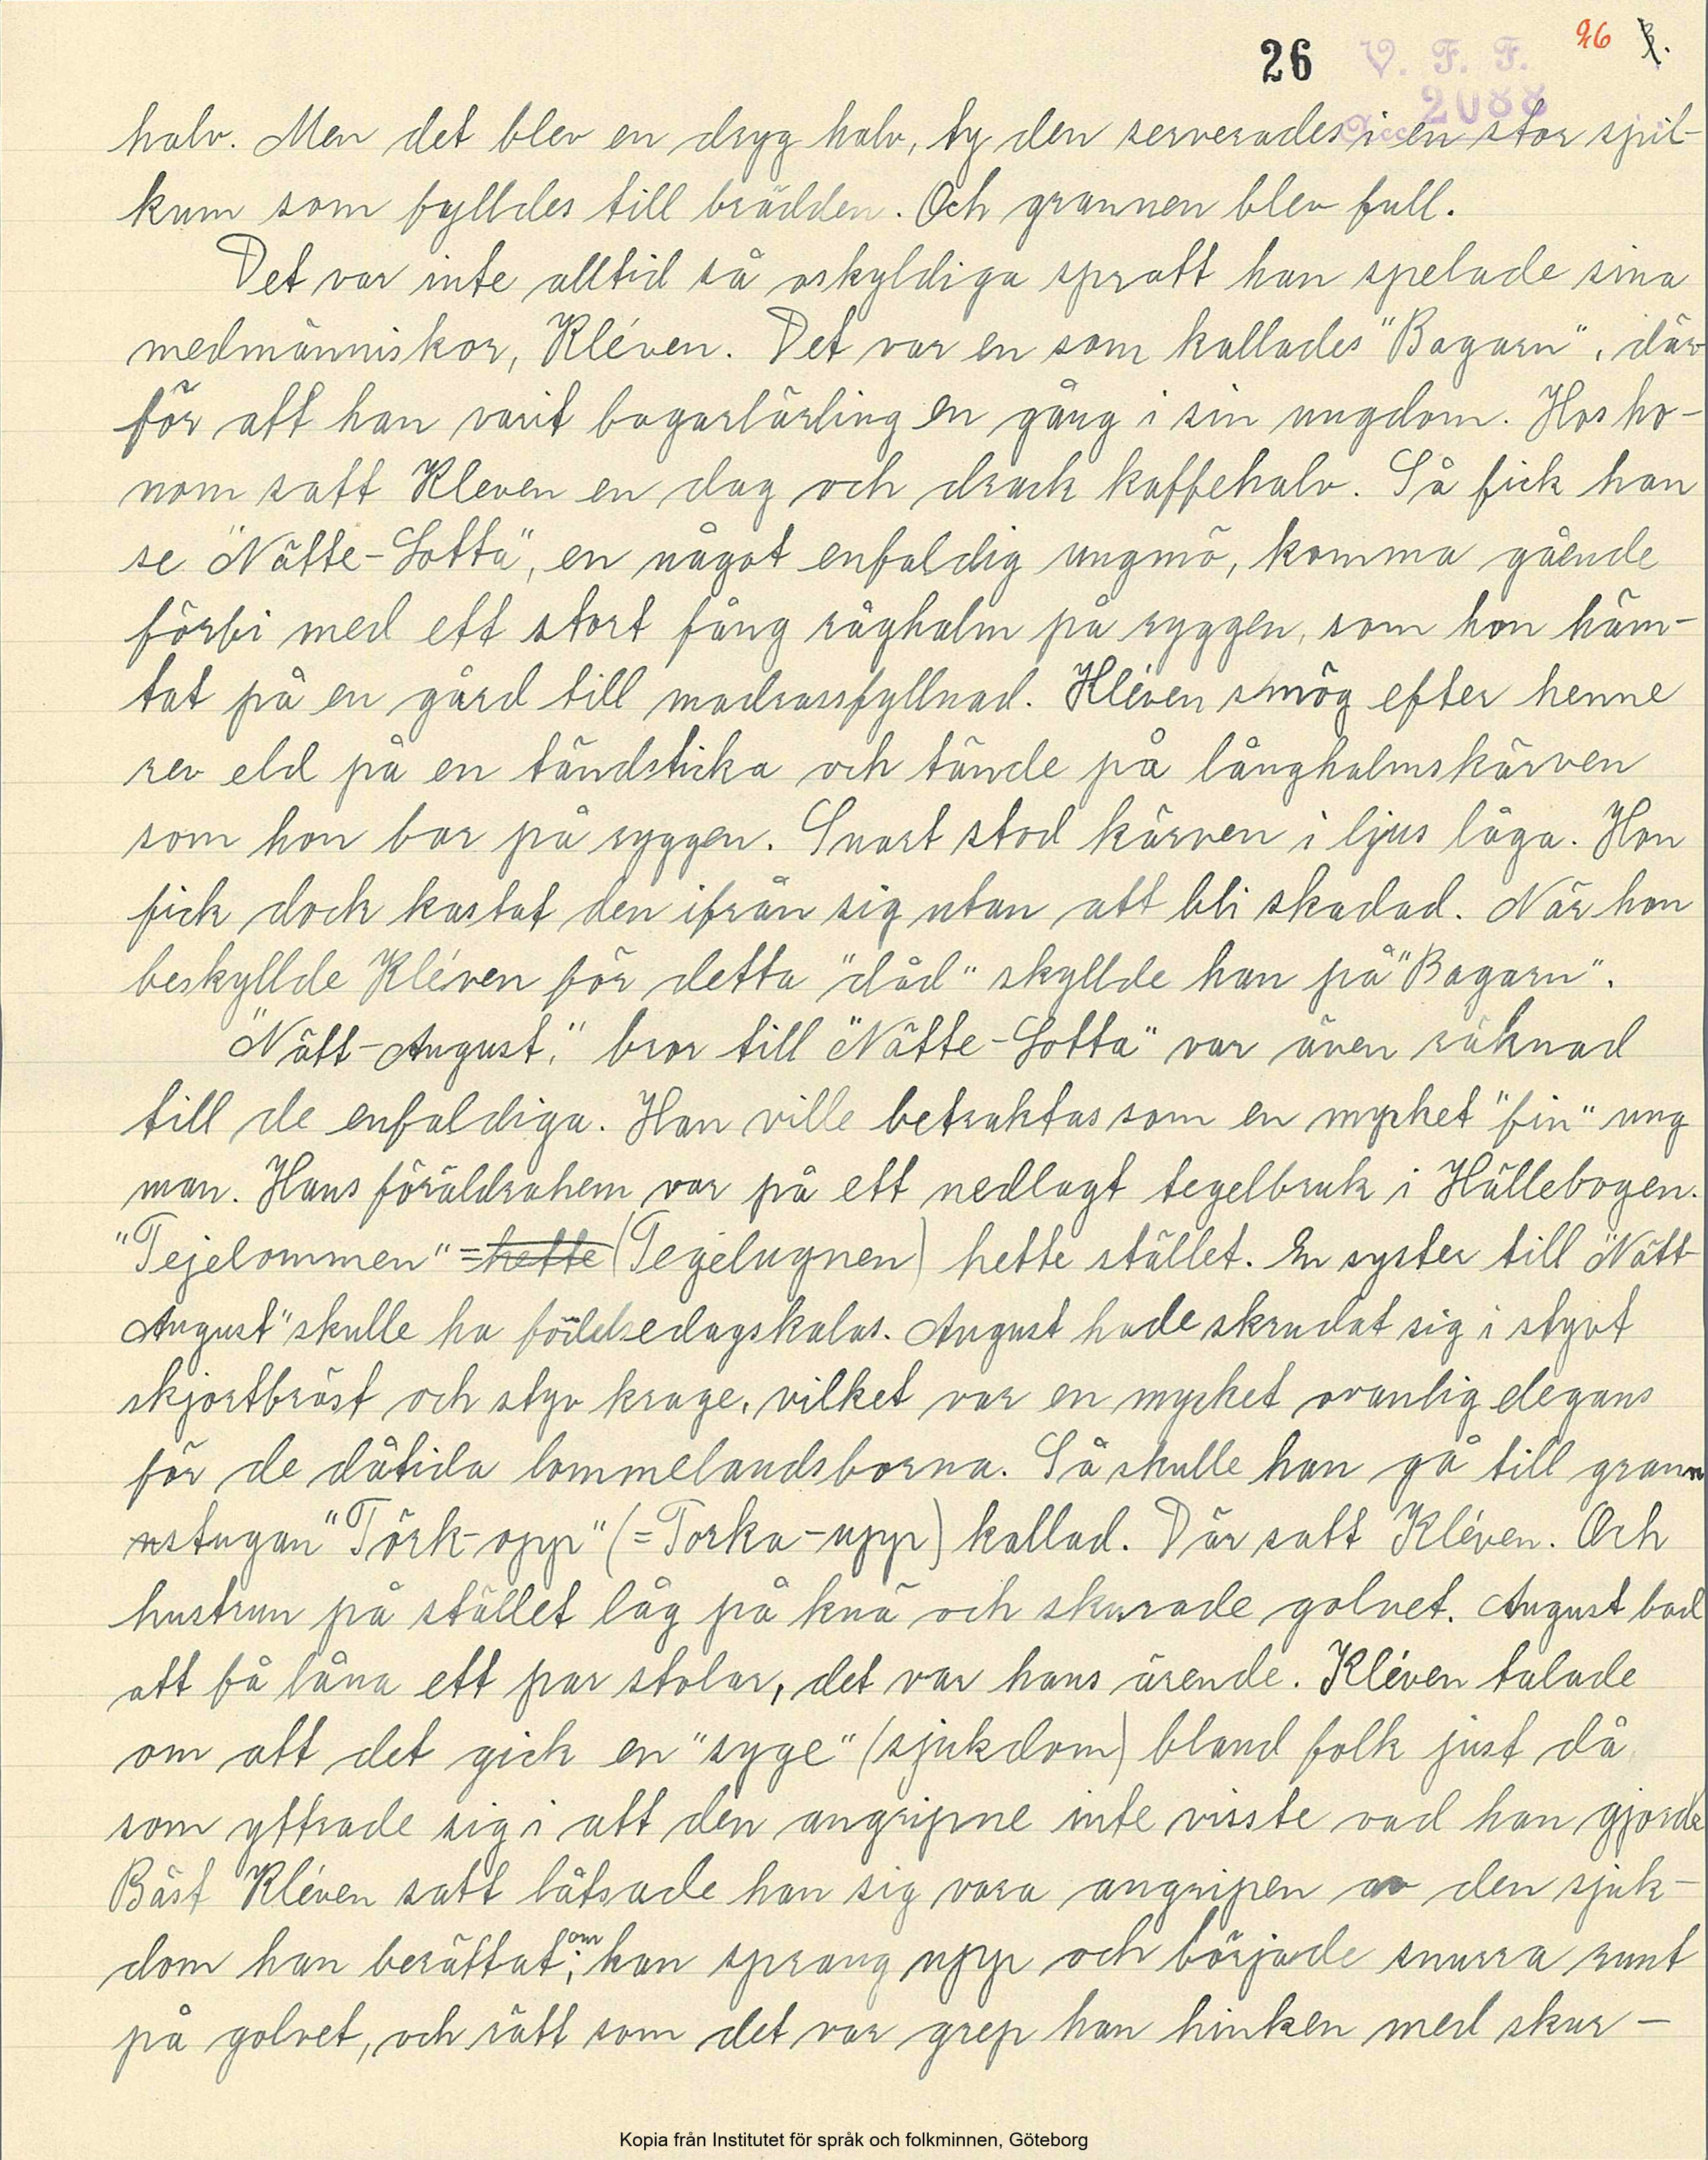 26 V. F. F. 26
2088
Acc
halv. Men det blev en dryg halv, ty den serverades i en stor spil-
kum som fylldes till brädden. Och grannen blev full.
Det var inte alltid så oskyldiga spratt han spelade sina
medmänniskor, Kléven. Det var en som kallades "Bagarn", där
för att han varit bagarlärling en gång i sin ungdom. Hos ho-
nom satt Kleven en dag och drack kaffehalv. Så fick han
se "Nätte-Lotta", en något enfaldig ungmö, komma gående
förbi med ett stort fång råghalm på ryggen, som hon häm-
tat på en gård till madrassfyllnad. Kléven smög efter henne
rev eld på en tändsticka och tände på långhalmskärven
som hon bar på ryggen. Snart stod kärven i ljus låga. Hon
fick dock kastat den ifrån sig utan att bli skadad. När hon
beskyllde Kléven för detta "dåd" skyllde han på "Bagarn".
"Nätt-August," bror till "Nätte-Lotta" var även räknad
till de enfaldiga. Han ville betraktas som en mycket "fin" ung
man. Hans föräldrahem var på ett nedlagt tegelbruk i Hällebogen.
"Tejelommen" = hette (Tegelugnen) hette stället. En syster till "Nätt
August" skulle ha födelsedagskalas. August hade skrudat sig i styvt
skjortbröst och styv krage, vilket var en mycket ovanlig elegans
för de dåtida lommelandsborna. Så skulle han gå till grann
nstugan "Törk-opp" (=Torka-upp) kallad. Där satt Kléven. Och
hustrun på stället låg på knä och skurade golvet. August bad
att få låna ett par stolar, det var hans ärende. Kléven talade
om att det gick en "syge" (sjukdom) bland folk just då
som yttrade sig i att den angripne inte visste vad han gjorde
Bäst Kléven satt låtsade han sig vara angripen av den sjuk-
dom han berättat om; han sprang upp och började snurra runt
på golvet, och rätt som det var grep han hinken med skur-
Kopia från Institutet för språk och folkminnen, Göteborg